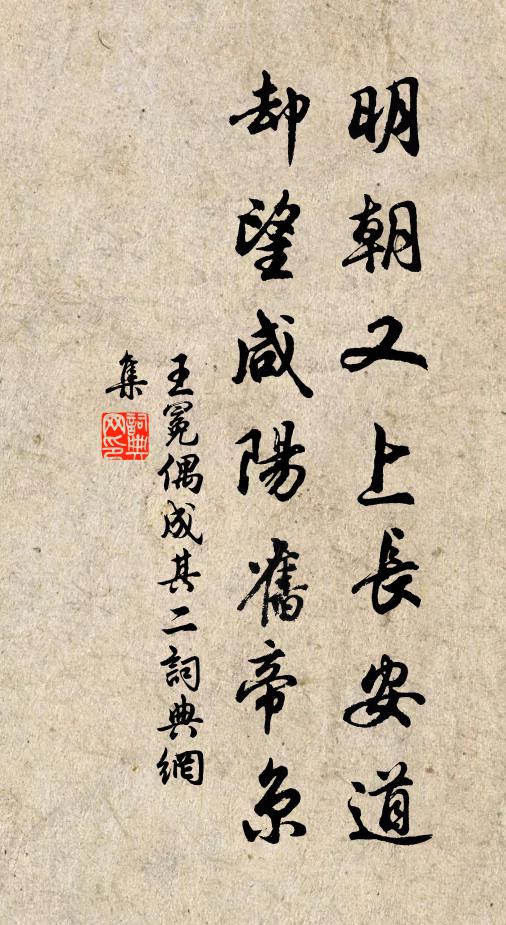 明朝又上長安道
却望咸陽舊帝京
王冕偶成其二詞典網
集
詞典
网印